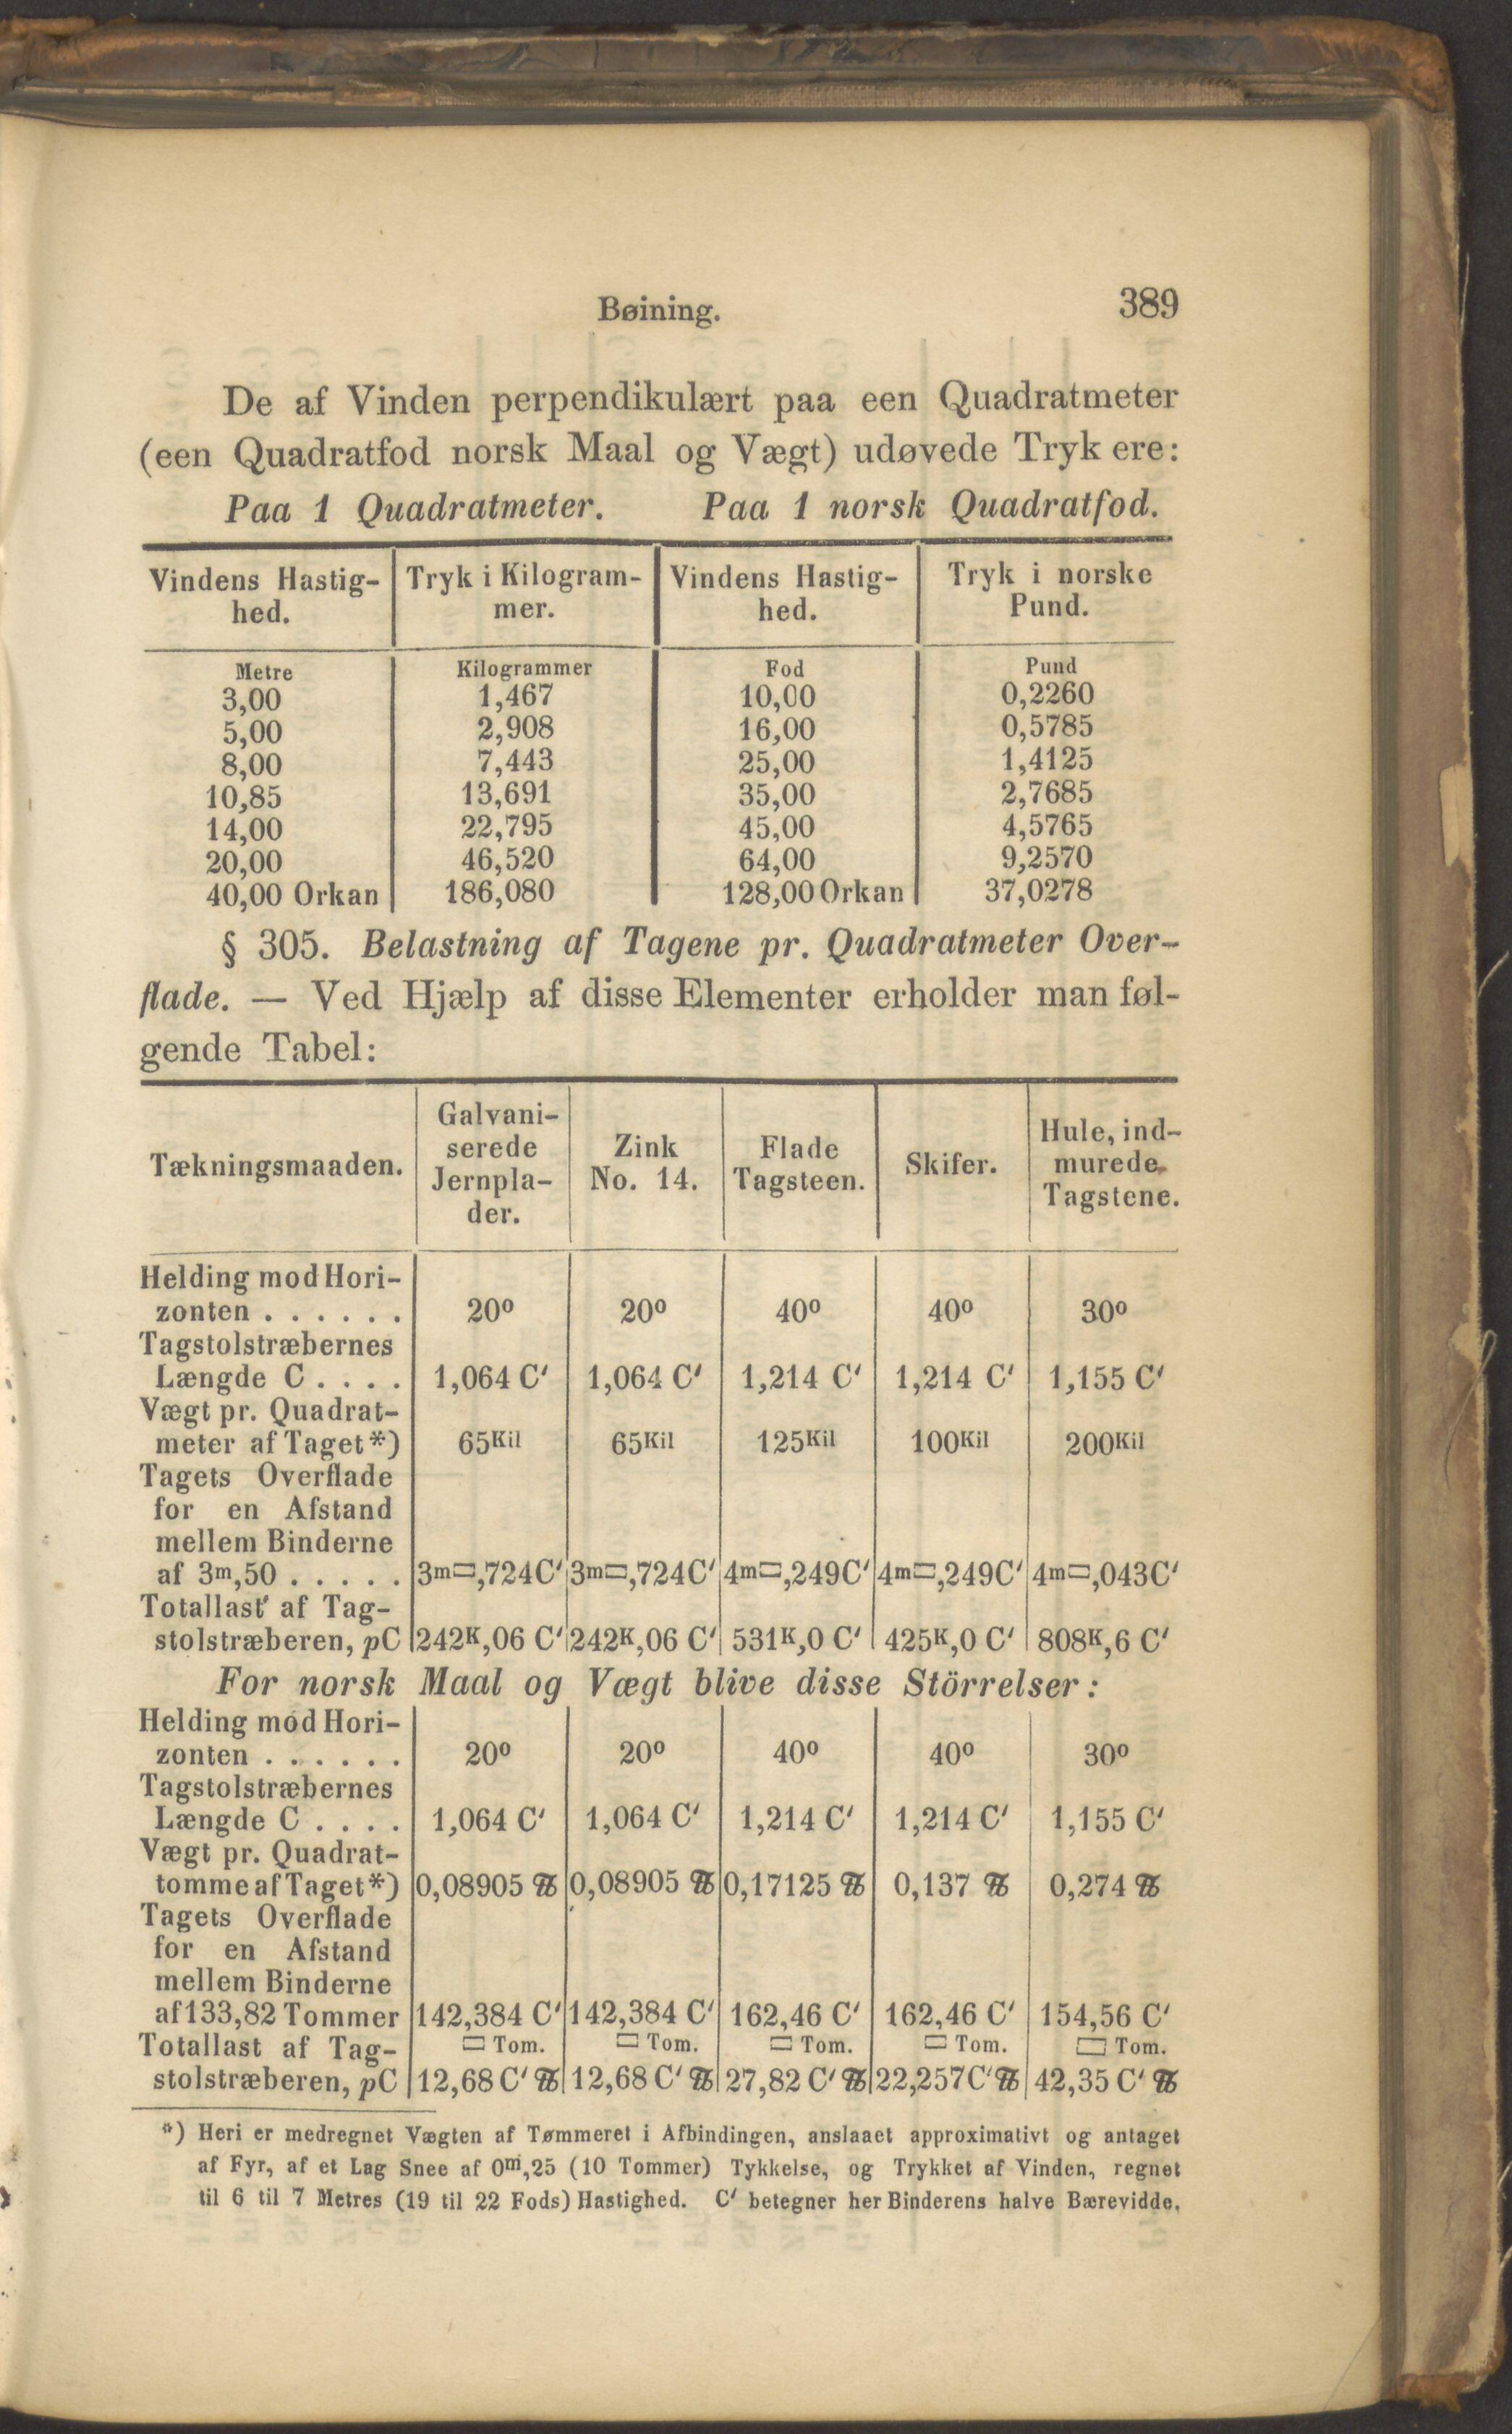 Bøining. 389
De af Vinden perpendikulært paa een Quadratmeter
(een Quadratfod norsk Maal og Vægt) udøvede Tryk ere:
Paa 1 Quadratmeter. Paa 1 norsk Quadratfod.
Vindens Hastig- Tryk i Kilogram- Vindens Hastig- Tryk i norske
hed. mer. hed. Pund.
Metre Kilogrammer Fod Pund
3,00 1,467 10,00 0,2260
5,00 2,908 16,00 0,5785
8,00 7,443 25,00 1,4125
10,85 13,691 35,00 2,7685
14,00 22,795 45,00 4,5765
20,00 46,520 64,00 9,2570
40,00 Orkan 186,080 128,00 Orkan 37,0278
§ 305. Belastning af Tagene pr. Quadratmeter Over-
flade. — Ved Hjælp af disse Elementer erholder man føl-
gende Tabel:
Tækningsmaaden.
Galvani-
serede
Jernpla-
der.
Zink
No. 14.
Flade
Tagsteen.
Skifer.
Hule, ind-
murede
Tagstene.
Helding mod Hori-
zonten . . . . . . 20° 20° 40° 40° 30°
Tagstolstræbernes
Længde C . . . . 1,064 C′ 1,064 C′ 1,214 C′ 1,214 C′ 1,155 C′
Vægt pr. Quadrat-
meter af Taget*) 65Kil 65Kil 125Kil 100Kil 200Kil
Tagets Overflade
for en Afstand
mellem Binderne
af 3m,50 . . . . . 3m▭,724C′ 3m▭,724C′ 4m▭,249C′ 4m▭,249C′ 4m▭,043C′
Totallast af Tag-
stolstræberen, pC 242K,06 C′ 242K,06 C′ 531K,0 C′ 425K,0 C′ 808K,6 C′
For norsk Maal og Vægt blive disse Störrelser:
Helding mod Hori-
zonten . . . . . . 20° 20° 40° 40° 30°
Tagstolstræbernes
Længde C . . . . 1,064 C′ 1,064 C′ 1,214 C′ 1,214 C′ 1,155 C′
Vægt pr. Quadrat-
tomme af Taget*) 0,08905 ℔ 0,08905 ℔ 0,17125 ℔ 0,137 ℔ 0,274 ℔
Tagets Overflade
for en Afstand
mellem Binderne
af 133,82 Tommer 142,384 C′ 142,384 C′ 162,46 C′ 162,46 C′ 154,56 C′
▭ Tom. ▭ Tom. ▭ Tom. ▭ Tom. ▭ Tom.
Totallast af Tag-
stolstræberen, pC 12,68 C′ ℔ 12,68 C′ ℔ 27,82 C′ ℔ 22,257C′ ℔ 42,35 C′ ℔
*) Heri er medregnet Vægten af Tømmeret i Afbindingen, anslaaet approximativt og antaget
af Fyr, af et Lag Snee af 0m,25 (10 Tommer) Tykkelse, og Trykket af Vinden, regnet
til 6 til 7 Metres (19 til 22 Fods) Hastighed. C′ betegner her Binderens halve Bærevidde.